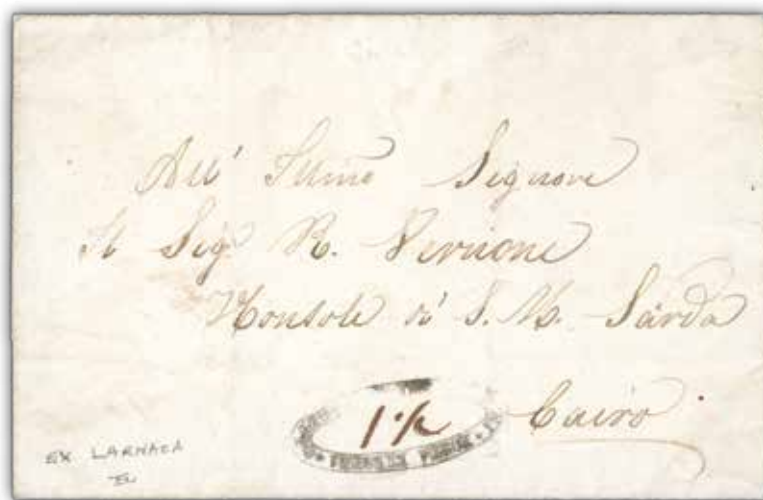 All' Illmo Signore
Il Sigr R. Vernone
Console di S. M. Sarda
Cairo
1·/2
EX LARNACA